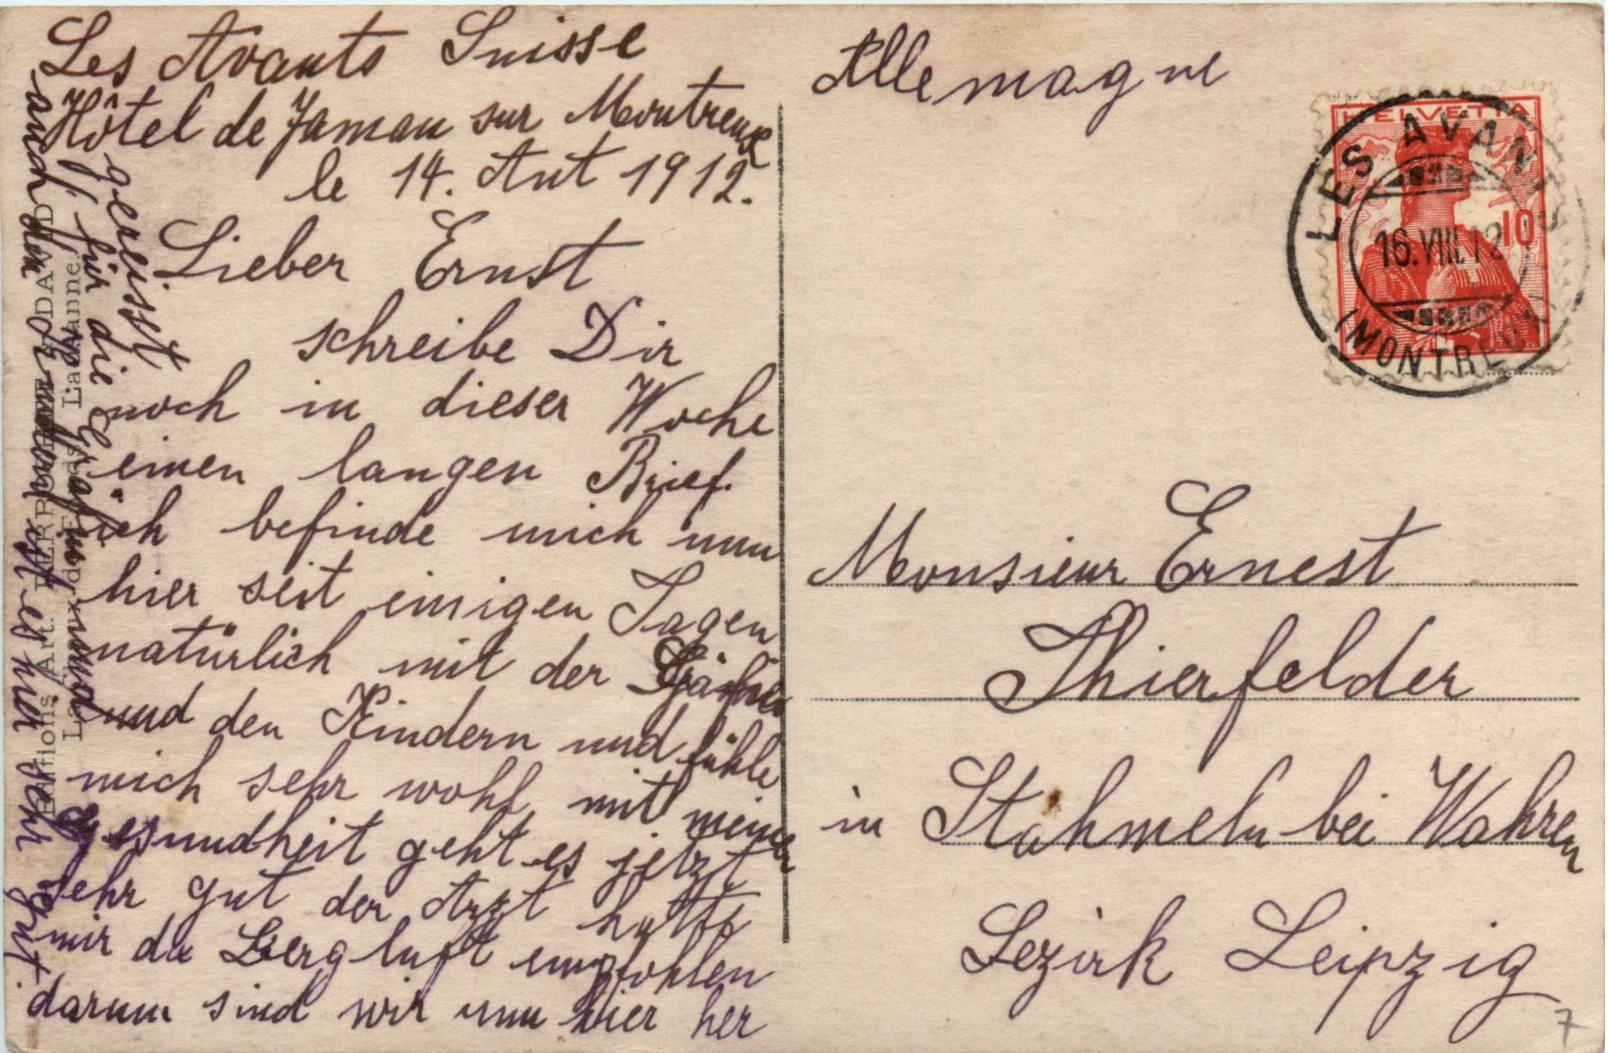 Les Avants Suisse
Hôtel de Jaman sur Montreux
le 14. Aut 1912.
Lieber Ernst
schreibe Dir
noch in dieser Woche
einen langen Brief.
ich befinde mich nun
hier seit einigen Tagen
natürlich mit der Gräfin
und den Kindern und fühle
mich sehr wohl mit meiner
gesundheit geht es jetzt
sehr gut der Arzt hatte
mir die Bergluft empfohlen
darum sind wir nun hier her
gereisst
auch für die Gräfin und
auch den Kindern ist es hier sehr gut.
Editions Art. PERROCHET & DAVID
Lausanne.
Allemagne
HELVETIA
10
LES AVANTS
16.VIII.12
(MONTREUX)
Monsieur Ernest
Thierfelder
in Stahmeln bei Wahren
Bezirk Leipzig
7